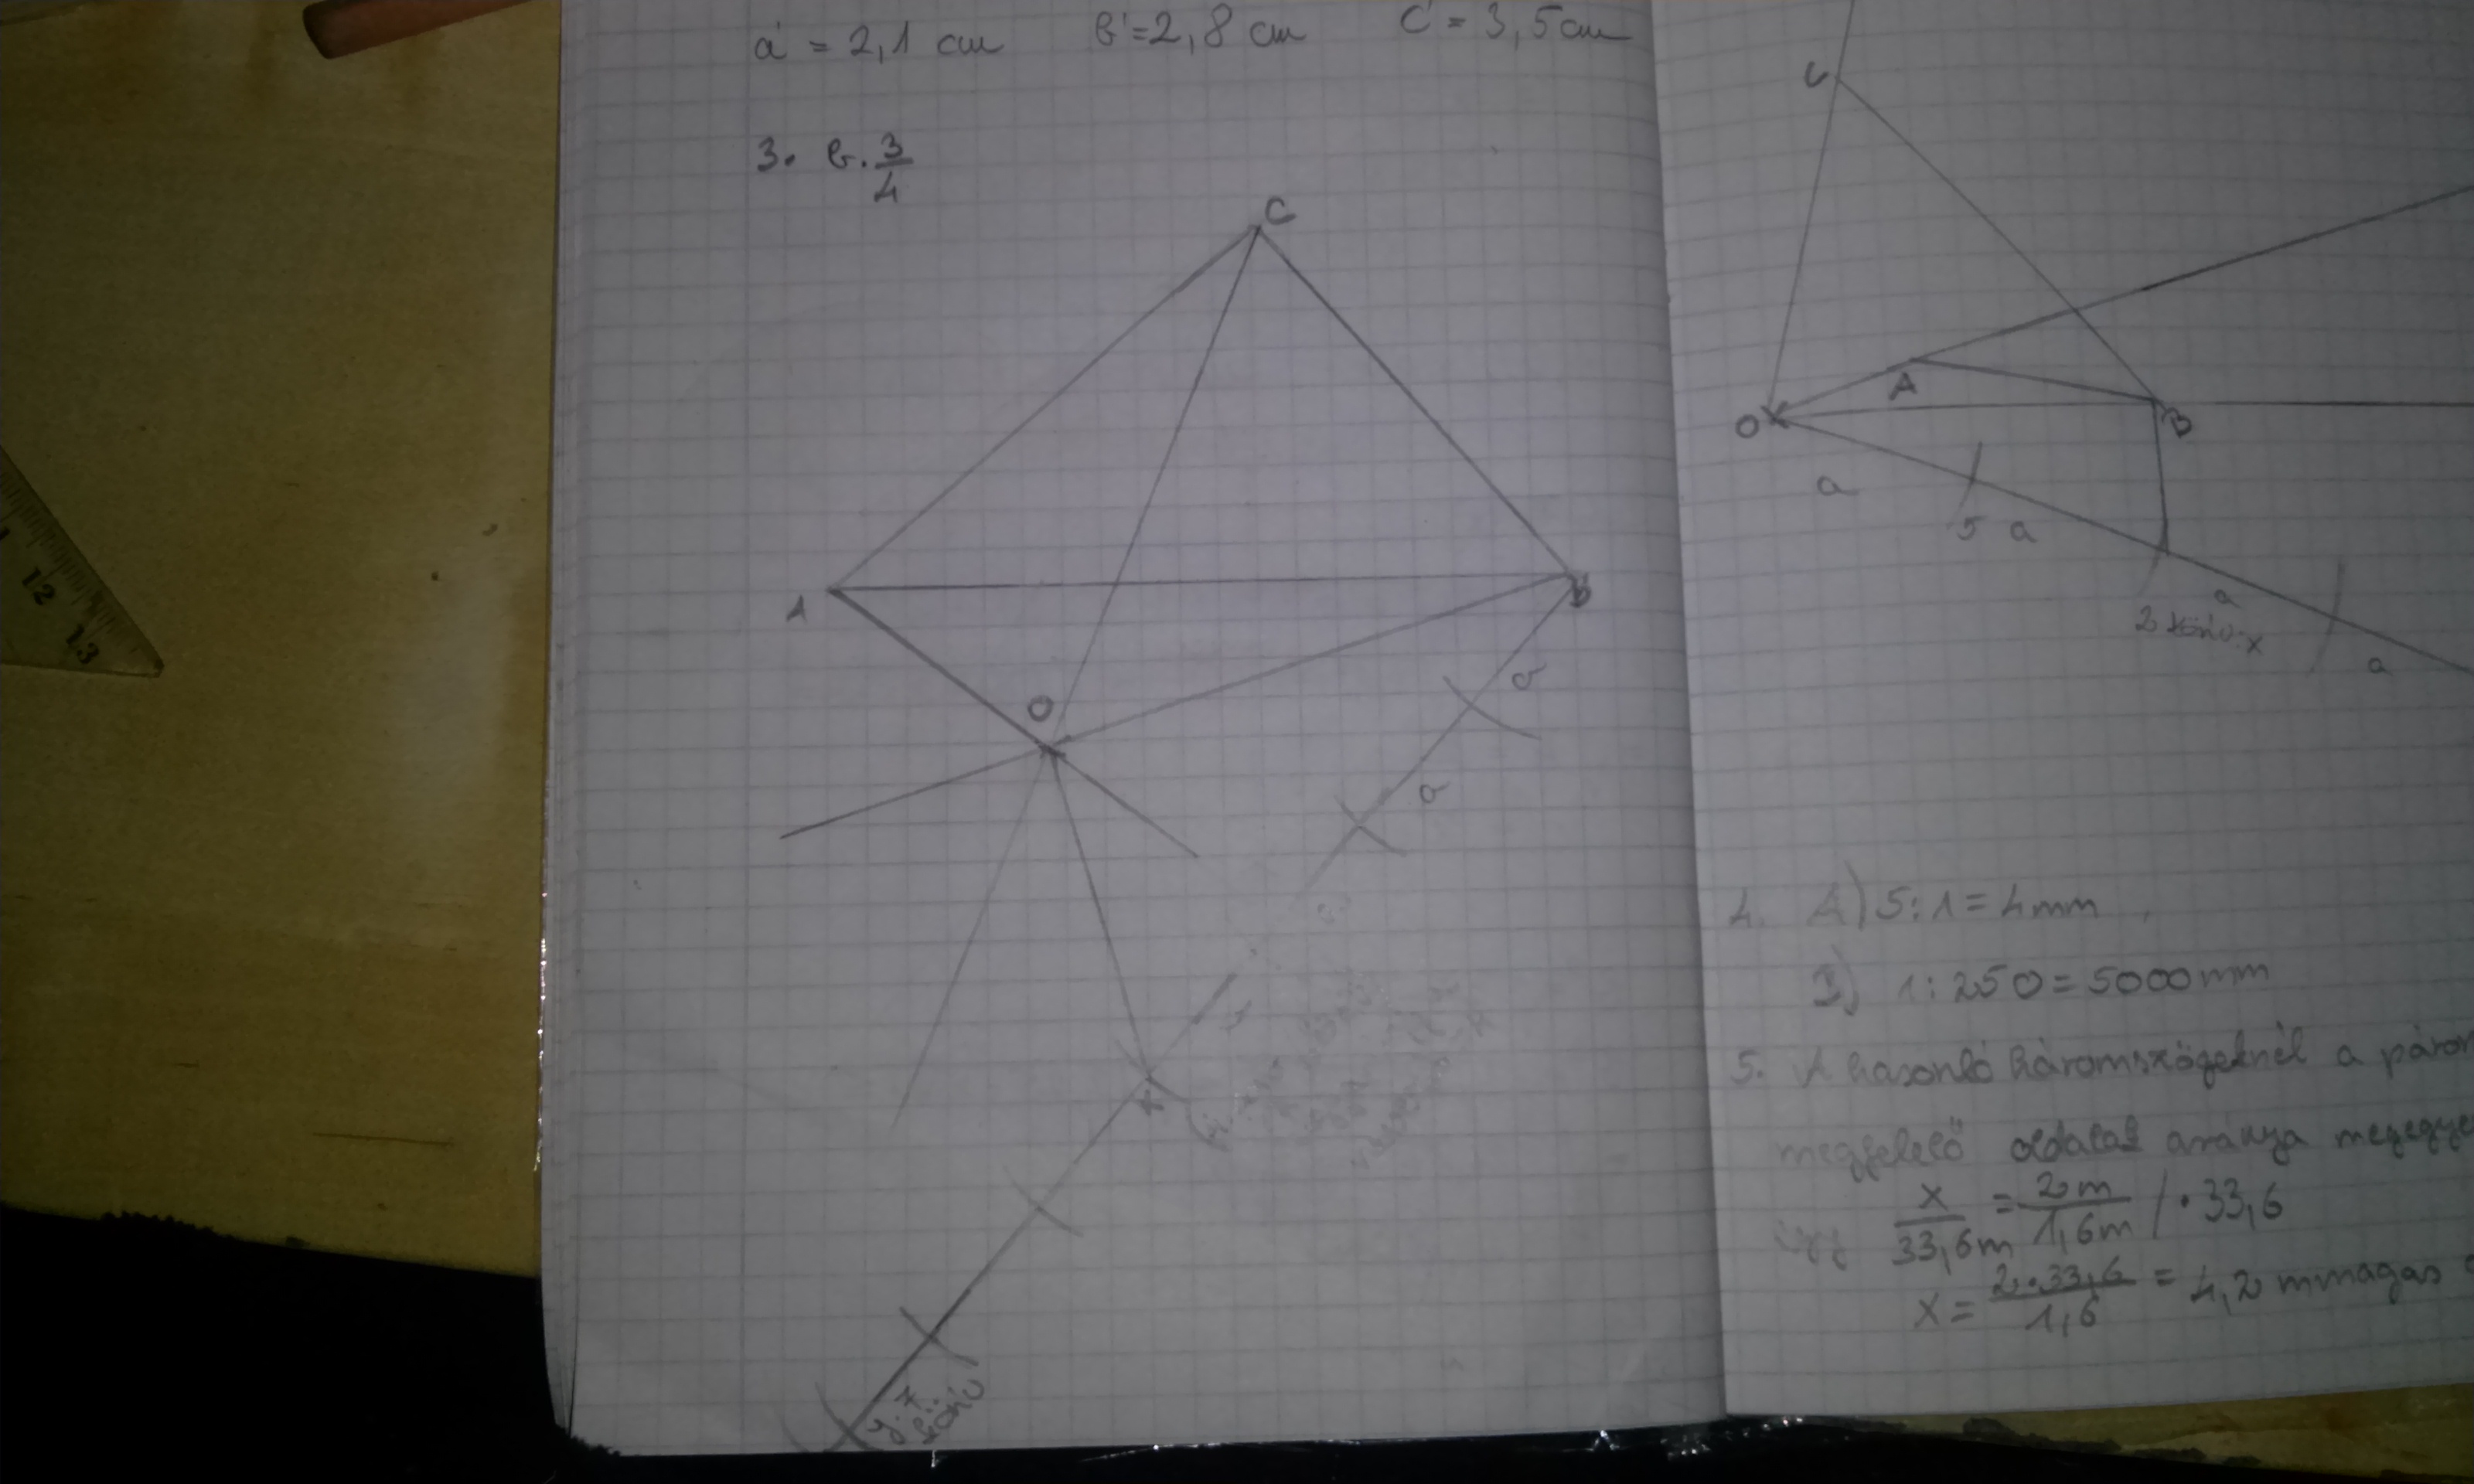 a' = 2,1 cm b' = 2,8 cm c' = 3,5 cm
3. b. 3/4
C
A
B
O
a
a
4
y: 7
C
O
A
B
a
5 a
a
a
4. A) 5:1 = 4mm
1:250 = 5000mm
5. A hasonló háromszögeknél a páron
megfelelő oldalak aránya megegye
így x/33,6m = 2m/1,6m /·33,6
x = 2·33,6/1,6 = 4,2 m magas
12
13